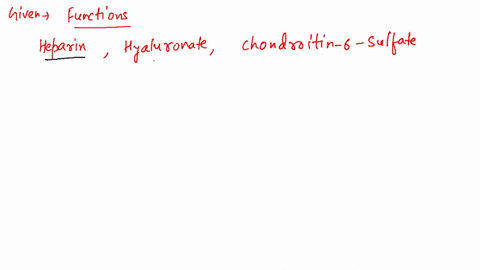 Given→ Functions
Heparin, Hyaluronate, Chondroitin-6-Sulfate